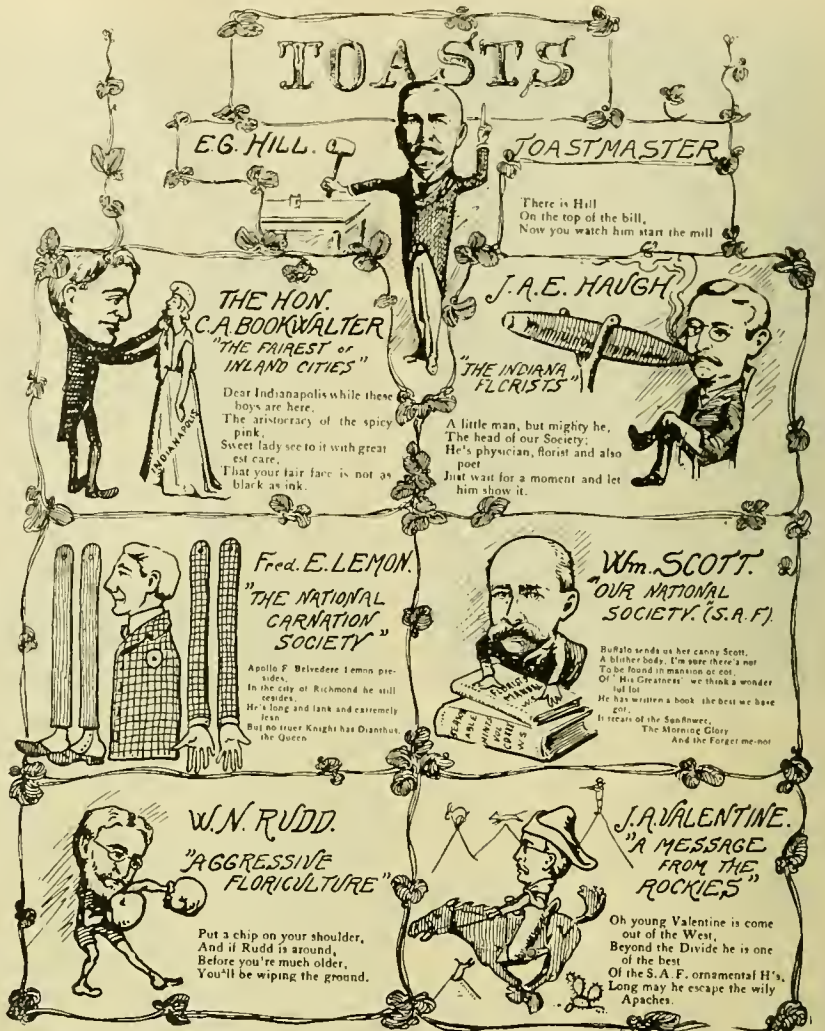 TOASTS
E.G. HILL.
TOASTMASTER
There is Hill
On the top of the bill,
Now you watch him start the mill
THE HON.
C.A. BOOKWALTER
"THE FAIREST OF
INLAND CITIES"
Dear Indianapolis while these
boys are here,
The aristocracy of the spicy
pink,
Sweet lady see to it with great
est care,
That your fair face is not as
black as ink.
INDIANAPOLIS
J.A.E. HAUGH
"THE INDIANA
FLORISTS"
A little man, but mighty he,
The head of our Society;
He's physician, florist and also
poet
Just wait for a moment and let
him show it.
Fred. E. LEMON.
"THE NATIONAL
CARNATION
SOCIETY"
Apollo F Belvedere Lemon pre-
sides,
In the city of Richmond he still
resides,
He's long and lank and extremely
lean
But no truer Knight has Dianthus,
the Queen
Wm. SCOTT.
"OUR NATIONAL
SOCIETY." (S.A.F).
Buffalo sends us her canny Scott,
A blither body, I'm sure there's not
To be found in mansion or cot,
Of "His Greatness" we think a wonder
ful lot
He has written a book the best we have
got,
It treats of the Sunflower,
The Morning Glory
And the Forget me-not
FLORISTS
MANUAL
W.S.
W.N. RUDD.
"AGGRESSIVE
FLORICULTURE"
Put a chip on your shoulder,
And if Rudd is around,
Before you're much older,
You'll be wiping the ground.
J.A. VALENTINE.
"A MESSAGE
FROM THE
ROCKIES"
Oh young Valentine is come
out of the West,
Beyond the Divide he is one
of the best
Of the S.A.F. ornamental H's,
Long may he escape the wily
Apaches.